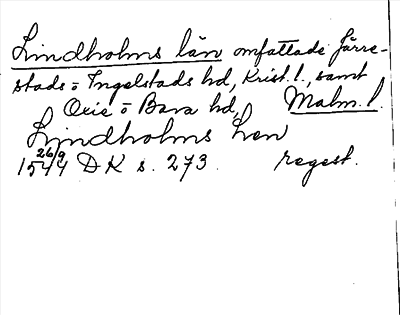 Lindholms län omfattade Järre-
stads o Ingelstads hd, Krist. l., samt
Oxie o Bara hd, Malm. l.
Lijndholms Len
26/9
1544 DK s. 273. regest.